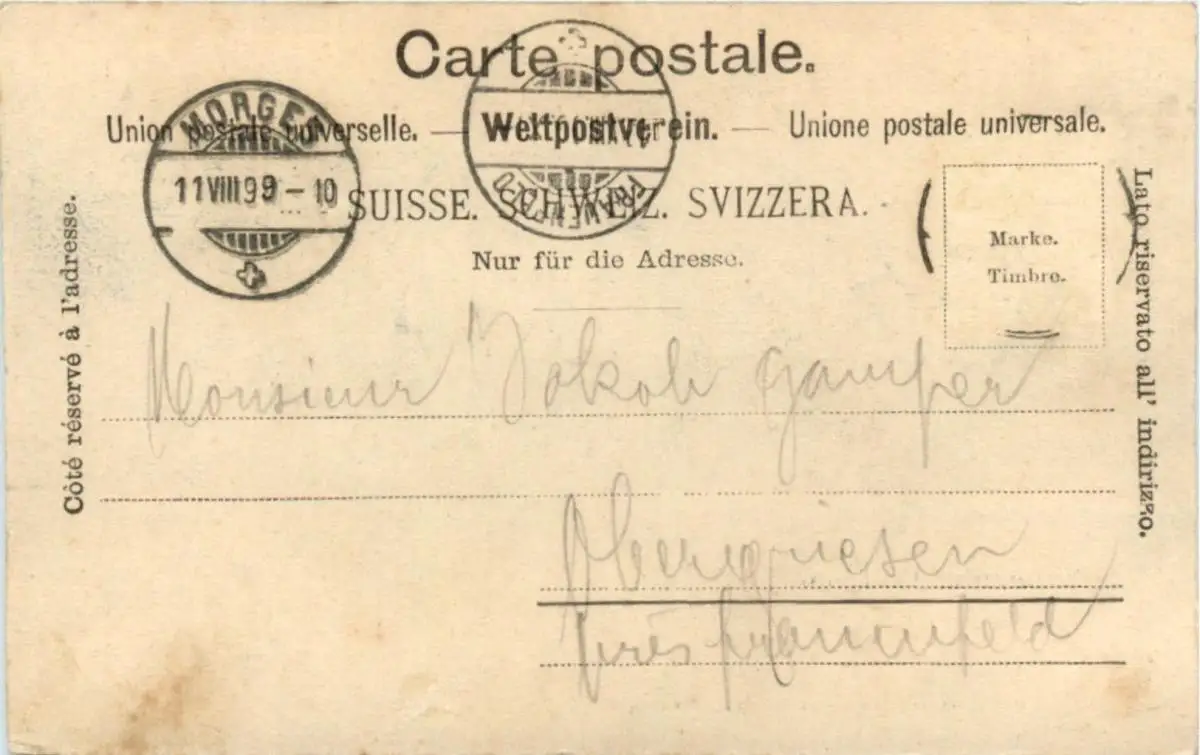 Carte postale.
Union postale universelle. — Weltpostverein. — Unione postale universale.
MORGES
11 VIII 99 – 10
FRAUENFELD
SUISSE. SCHWEIZ. SVIZZERA.
Nur für die Adresse.
Côté réservé à l'adresse.
Marke.
Timbre.
Lato riservato all' indirizzo.
Monsieur Jakob Gamper
Obergriesen
près Frauenfeld